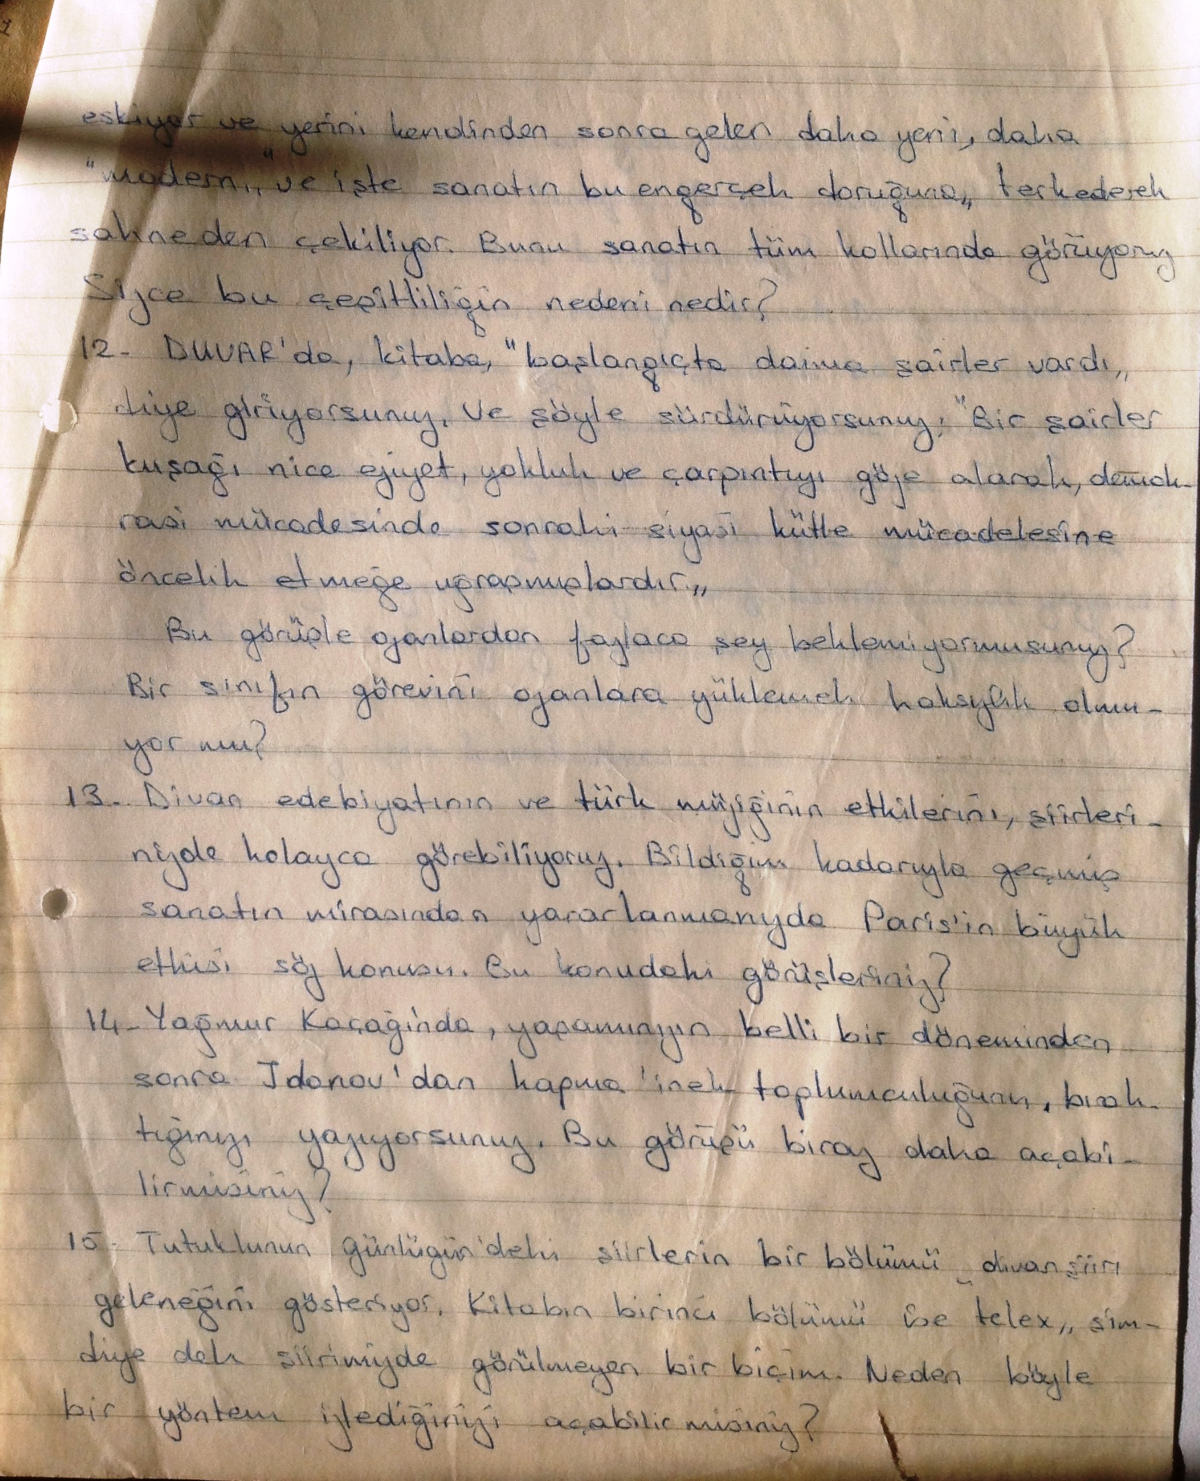 eskiyor ve yerini kendinden sonra gelen daha yeni, daha
"modern,, ve işte sanatın bu engerçek doruğuna,, terkederek
sahneden çekiliyor. Bunu sanatın tüm kollarında görüyoruz
Sizce bu çeşitliliğin nedeni nedir?
12- DUVAR'da, kitaba, "başlangıçta daima şairler vardı,,
diye giriyorsunuz. Ve şöyle sürdürüyorsunuz: "Bir şairler
kuşağı nice eziyet, yokluk ve çarpıntıyı göze alarak, demok-
rasi mücadesinde sonraki siyasi kütle mücadelesine
öncelik etmeğe uğraşmışlardır.,,
Bu görüşle ozanlardan fazlaca şey beklemiyormusunuz?
Bir sınıfın görevini ozanlara yüklemek haksızlık olmu-
yor mu?
13- Divan edebiyatının ve türk müziğinin etkilerini, şiirleri-
nizde kolayca görebiliyoruz. Bildiğim kadarıyla geçmiş
sanatın mirasından yararlanmanızda Paris'in büyük
etkisi söz konusu. Bu konudaki görüşleriniz?
14- Yağmur Kaçağında, yaşamınızın belli bir döneminden
sonra Jdanov'dan kapma 'inek toplumculuğunu, bırak-
tığınızı yazıyorsunuz. Bu görüşü biraz daha açabi-
lirmisiniz?
15- Tutuklunun Günlüğün'deki siirlerin bir bölümü divan şiiri
geleneğini gösteriyor. Kitabın birinci bölümü ise "telex,, şim-
diye dek siirimizde görülmeyen bir biçim. Neden böyle
bir yöntem izlediğinizi açabilir misiniz?